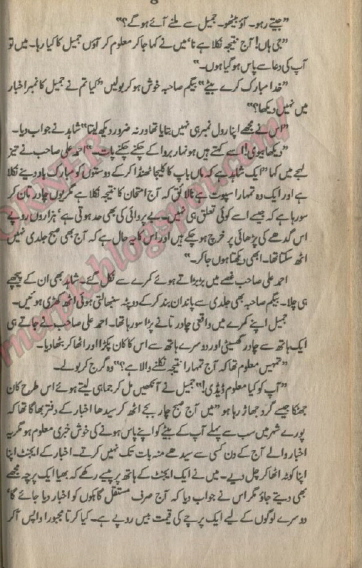 "جیتے رہو۔ آؤ بیٹھو۔ جمیل سے ملنے آئے ہوگے؟"
"جی ہاں! آج نتیجہ نکلا ہے نا میں نے کہا جا کر معلوم کر آؤں جمیل کا کیا رہا۔ میں تو
آپ کی دعا سے پاس ہوگیا ہوں۔"
"خدا مبارک کرے بیٹے" بیگم صاحبہ خوش ہو کر بولیں "کیا تم نے جمیل کا نمبر اخبار
میں نہیں دیکھا؟"
"اس نے مجھے اپنا رول نمبر ہی نہیں بتایا تھا ورنہ ضرور دیکھ لیتا" شاہد نے جواب دیا۔
"دیکھا بیوی! اسے کہتے ہیں ہونہار بروا کے چکنے چکنے پات۔" احمد علی صاحب نے تیز
لہجے میں کہا "ایک شاہد ہے کہ ماں باپ کا کلیجا ٹھنڈا کر کے دوستوں کو مبارک باد دینے نکلا
ہے اور ایک وہ تمہارا سپوت ہے نالائق کہ آج امتحان کا نتیجہ نکلا ہے مگر یوں چادر تان کر
سو رہا ہے کہ جیسے اسے کوئی تعلق ہی نہیں۔ بے پروائی کی بھی حد ہوتی ہے' ہزاروں روپے
اس گدھے کی پڑھائی پر خرچ ہوچکے ہیں اور اس کا یہ حال ہے کہ آج بھی صبح جلدی نہیں
اٹھ سکتا تھا۔ ابھی دیکھتا ہوں جا کر۔"
احمد علی صاحب غصے میں بڑبڑاتے ہوئے کمرے سے نکل گئے۔ شاہد بھی ان کے پیچھے
ہی چلا۔ بیگم صاحبہ بھی جلدی سے پاندان بند کر کے دوپٹہ سنبھالتی ہوئی اٹھ کھڑی ہوئیں۔
جمیل اپنے کمرے میں واقعی چادر تانے پڑا سو رہا تھا۔ احمد علی صاحب نے جاتے ہی
ایک ہاتھ سے چادر گھسیٹی اور دوسرے ہاتھ سے اس کا کان پکڑا اور اٹھا کر بٹھا دیا۔
"تمہیں معلوم تھا کہ آج تمہارا نتیجہ نکلنے والا ہے؟" وہ گرج کر بولے۔
"آپ کو کیا معلوم ڈیڈی!" جمیل نے آنکھیں مل کر جماہی لیتے ہوئے اس طرح کان
جھٹکا جیسے گرد جھاڑ رہا ہو "میں آج صبح چار بجے اٹھ کر سیدھا اخبار کے دفتر بھاگا تھا کہ
پورے شہر میں سب سے پہلے آپ کے بیٹے کو اپنے پاس ہونے کی خوش خبری معلوم ہو مگر یہ
اخبار والے آج کے دن کسی سے سیدھے منہ بات تک نہیں کرتے۔ اخبار کے ایجنٹ اپنا
اپنا کوٹہ اٹھا کر چل دیے۔ میں نے ایک ایجنٹ کے ہاتھ پر پیسے رکھے کہ بھیا ایک پرچہ مجھے
بھی دیتے جاؤ مگر اس نے جواب دیا کہ آج صرف مستقل گاہکوں کو اخبار دیا جائے گا'
دوسرے لوگوں کے لیے ایک پرچے کی قیمت بیس روپے ہے۔ کیا کرتا مجبوراً واپس آ کر